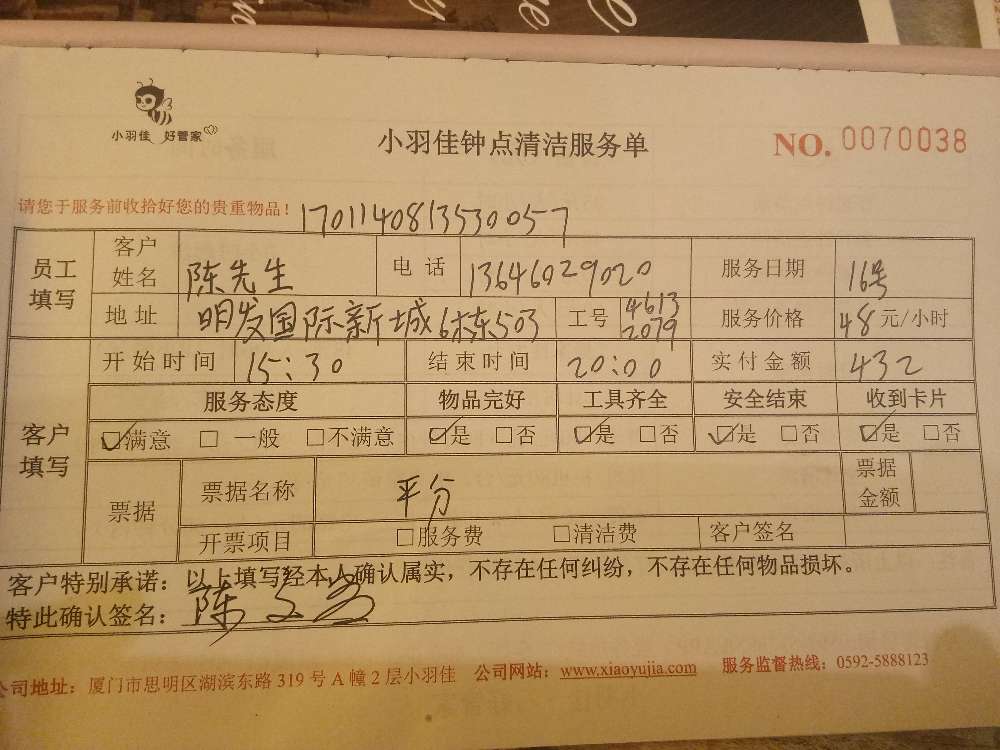 小羽佳 好管家
小羽佳钟点清洁服务单
NO. 0070038
请您于服务前收拾好您的贵重物品！ 1701140813530057
员工填写 客户姓名 陈先生 电话 13646029020 服务日期 16号
地址 明发国际新城6栋503 工号 4613 2079 服务价格 48元/小时
开始时间 15:30 结束时间 20:00 实付金额 432
客户填写 服务态度 物品完好 工具齐全 安全结束 收到卡片
☑满意 □一般 □不满意 ☑是 □否 ☑是 □否 ☑是 □否 ☑是 □否
票据 票据名称 平分 票据金额
开票项目 □服务费 □清洁费 客户签名
客户特别承诺：以上填写经本人确认属实，不存在任何纠纷，不存在任何物品损坏。
特此确认签名：陈
公司地址：厦门市思明区湖滨东路319号A幢2层小羽佳 公司网站：www.xiaoyujia.com 服务监督热线：0592-5888123